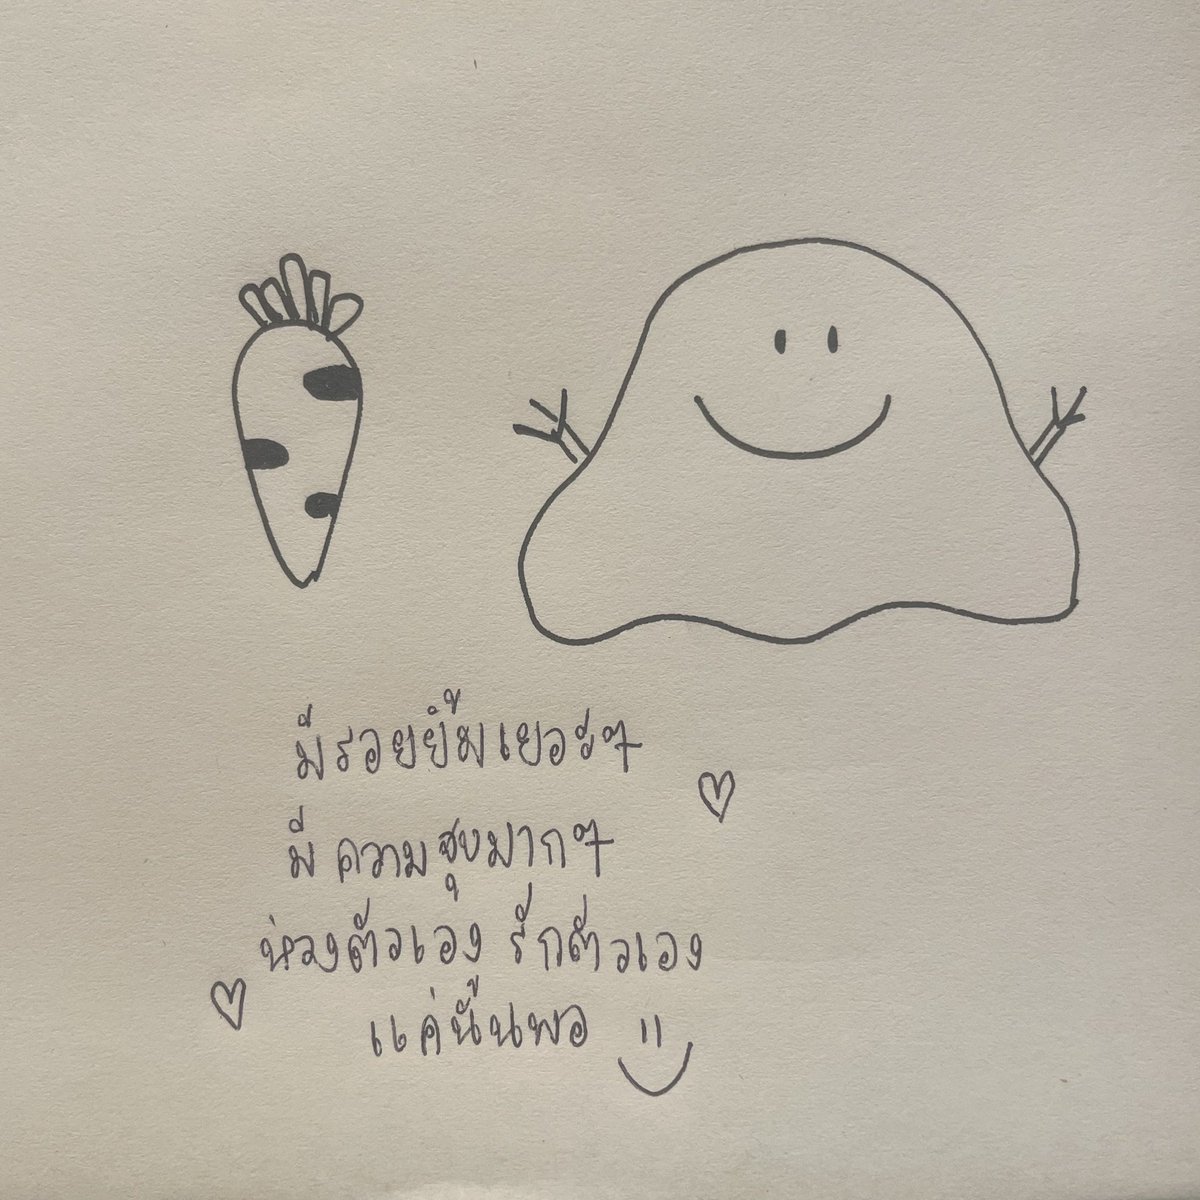 มีรอยยิ้มเยอะๆ
มีความสุขมากๆ
ห่วงตัวเอง รักตัวเอง
แค่นั้นพอ